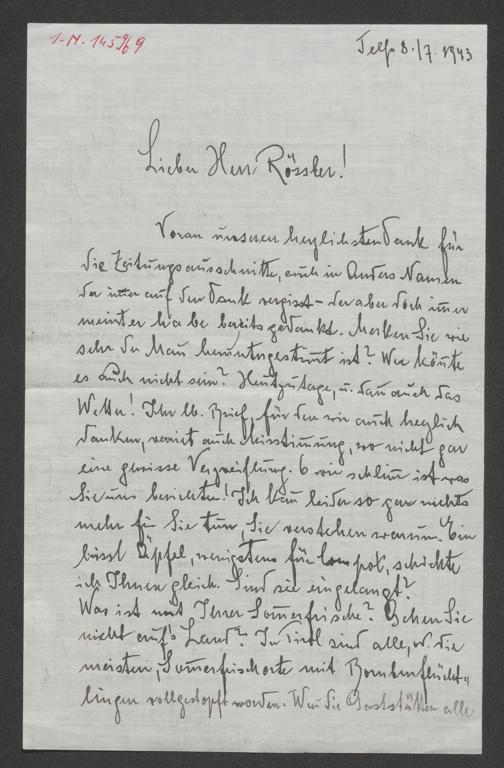 I-N. 145969
Telfs 8./7. 1943
Lieber Herr Rössler!
Voran unseren herzlichsten Dank für
die Zeitungsausschnitte, auch in Anders Namen
der imer auf den Dank vergisst – der aber doch imer
meint er habe bereits gedankt. Merken Sie wie
sehr der Mann heruntergestimt ist? Wer könnte
es auch nicht sein? Heutzutage, u. dan auch das
Wetter! Ihr lb. Brief, für den wir auch herzlich
danken, verriet auch Misstimung, wo nicht gar
eine gewisse Verzweiflung. O wie schlim ist was
Sie uns berichten! Ich kan leider so gar nichts
mehr für Sie tun, Sie verstehen warum. Ein
bissl Äpfel, wenigstens für Compot, schickte
ich Ihnen gleich. Sind sie eingelangt?
Was ist mit Ihrer Somerfrische? Gehen Sie
nicht auf's Land? In Tirol sind alle, od. die
meisten, Somerfrischorte mit Bombenflücht-
lingen vollgestopft worden. Wen die Gaststätten alle